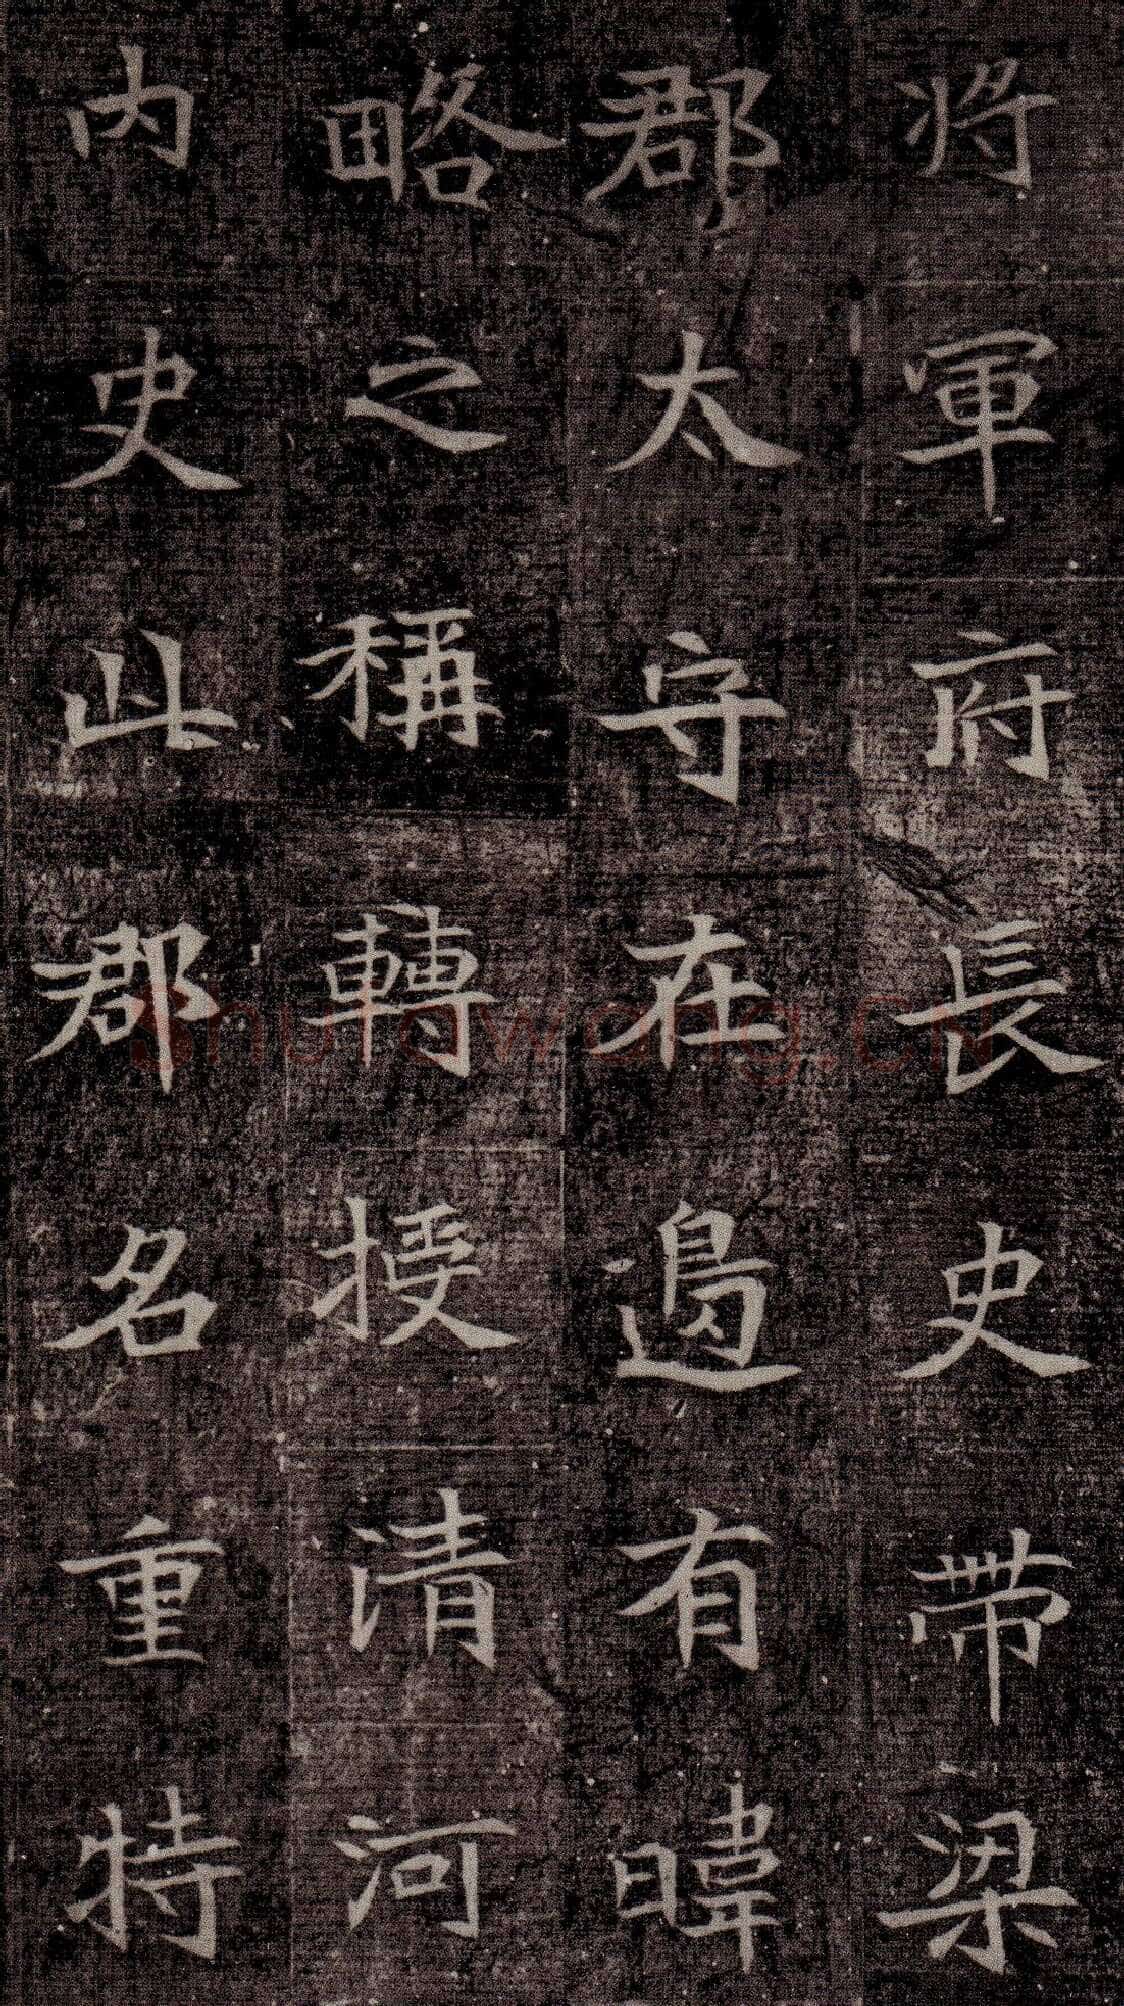 將軍府長史帶梁
郡太守在邊有暐
略之稱轉授清河
內史此郡名重特
Shufawang.CN